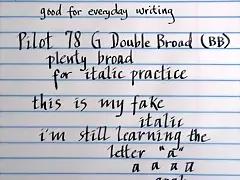 good for everyday writing
Pilot 78 G Double Broad (BB)
plenty broad
for italic practice
this is my fake
italic
i'm still learning the
letter "a"
a a a a